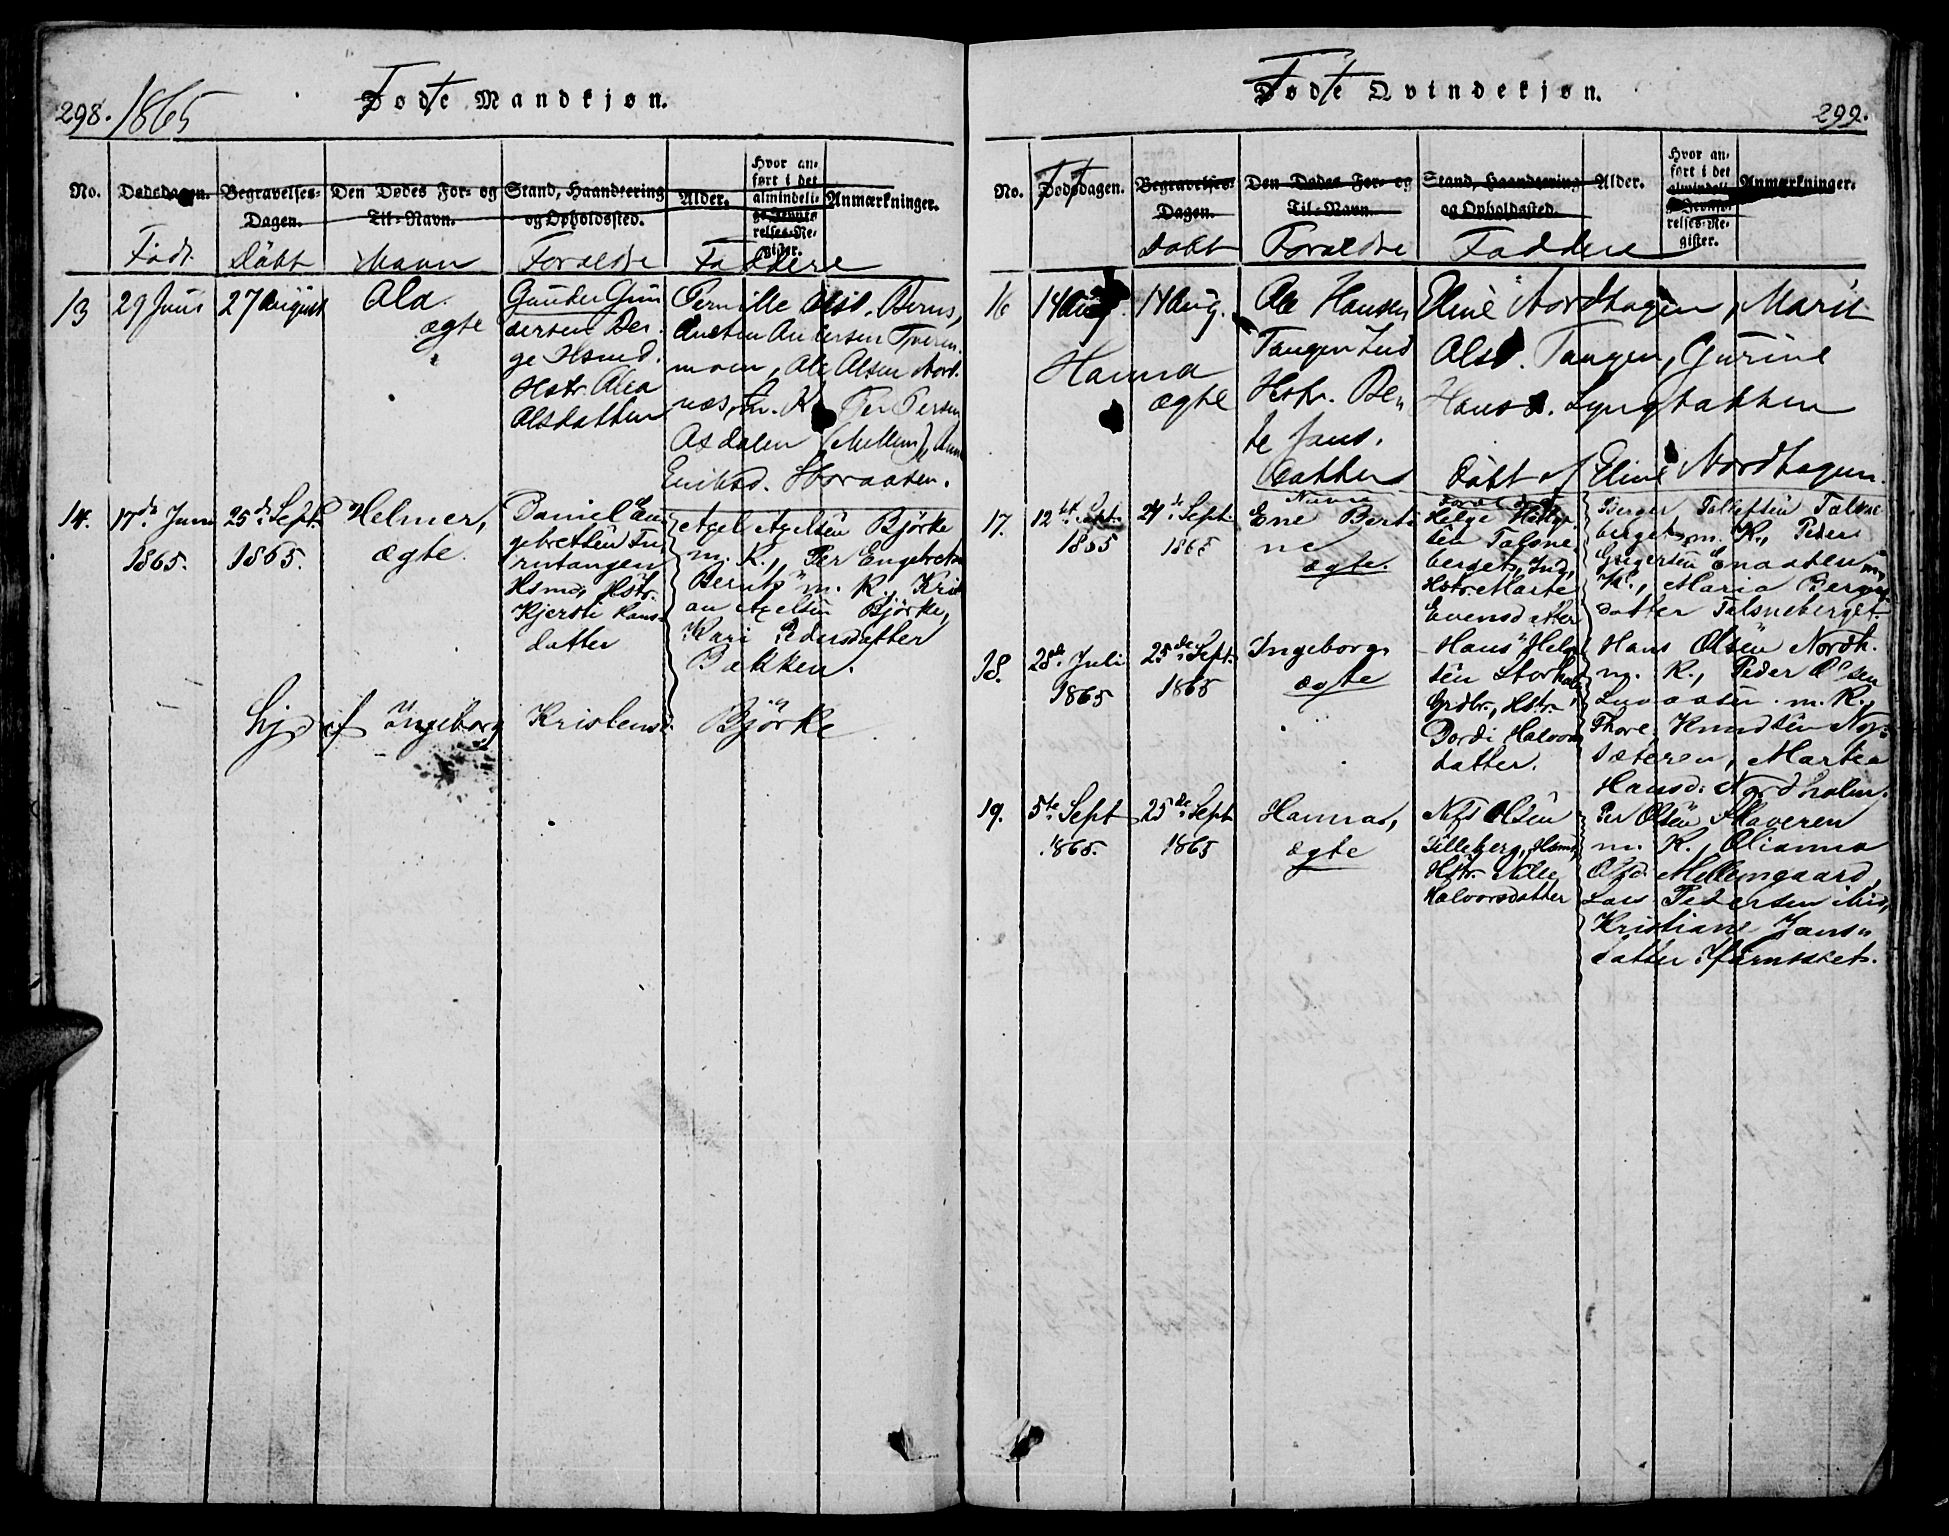 298. 1865
Fødte Mandkjøn.
No.
Dødsdagen.
Født.
Begravelses-
Dagen.
Döbt
Den Dødes For- og
Til-Navn.
Navn
Stand, Haandtering
og Opholdssted.
Foraeldre
Alder.
Hvor an-
ført i det
almindeli-
ge Jevnfø-
relses-Re-
gister.
Anmærkninger.
Faddere
13
29 Juni
27 August
Ola.
ægte
Gunder Gun
dersen Ber-
ge Hsmd.
Hstr. Olea
Olsdatter
Pernille Olsd. Berns,
Andersen
moen, Ole Olsen Nord.
næs, m. K. Per Persen
Asdalen (Mellem),
Eriksd. Storaasen.
14.
17de Juni
1865.
25de Sept.
1865.
Helmer,
ægte.
Daniel En-
gebretsen Fu-
rutangen
Hsmd, Hstr.
Kjersti Hans-
datter
Axel Axelsen Björke
m. K., Per Engebretsen
m. K., Krist
an Axelsen Björke,
Kari Pedersdatter
Bakken.
Hjd. af Ingeborg Kristensd. Björke
Fødte Qvindekjøn.
299.
No.
Dødsdagen.
Begravelses-
Dagen.
Döbt
Den Dødes For- og
Til-Navn.
Foraeldre
Stand, Haandtering
og Opholdssted.
Faddere
Alder.
Hvor an-
ført i det
almindeli-
ge Jevnfø-
relses-Re-
gister.
Anmærkninger.
16
14 Aug.
Hanna
14 Aug.
ægte
Ole Hansen
Tangen Ind
Hstr. Ben
te Jans.
datter
Eline Nordhagen, Marit
Olsd. Tangen, Gurine
Hansd. Lyngbakken
Döbt af Eline Nordhagen.
17.
12te Sept.
1865
24de Sept.
1865
Navn
Ene Berti
ne
ægte.
Helge Helge-
sen Talsne-
berget, Ind.,
Hstr. Marte
Evensdatter
Berger Tollefsen Talsne
berget m. K., Peder
Gregersen Enaasen m.
K., Maria Berger
datter Talsneberget.
18.
28de Juli
1865
25de Sept.
1865
Ingeborg,
ægte
Hans Helge
sen Storhol,
Grdbr., Hstr.
Dordi Halvors
datter.
Hans Olsen Nordh.
m. K., Peder Olsen
m. K.,
Thore Knudsen Ny-
sæteren, Martea
Hansd. Nordholen.
19.
5te Sept
1865.
25de Sept
1865
Hanna,
ægte
Nils Olsen
Lilleberg, Hsmd,
Hstr. Nille
Halvorsdatter
Per Olsen Skaveren
m. K., Olianna
Olsd. Mellemgaard,
Lars Pedersen
Kristiane Jans-
datter